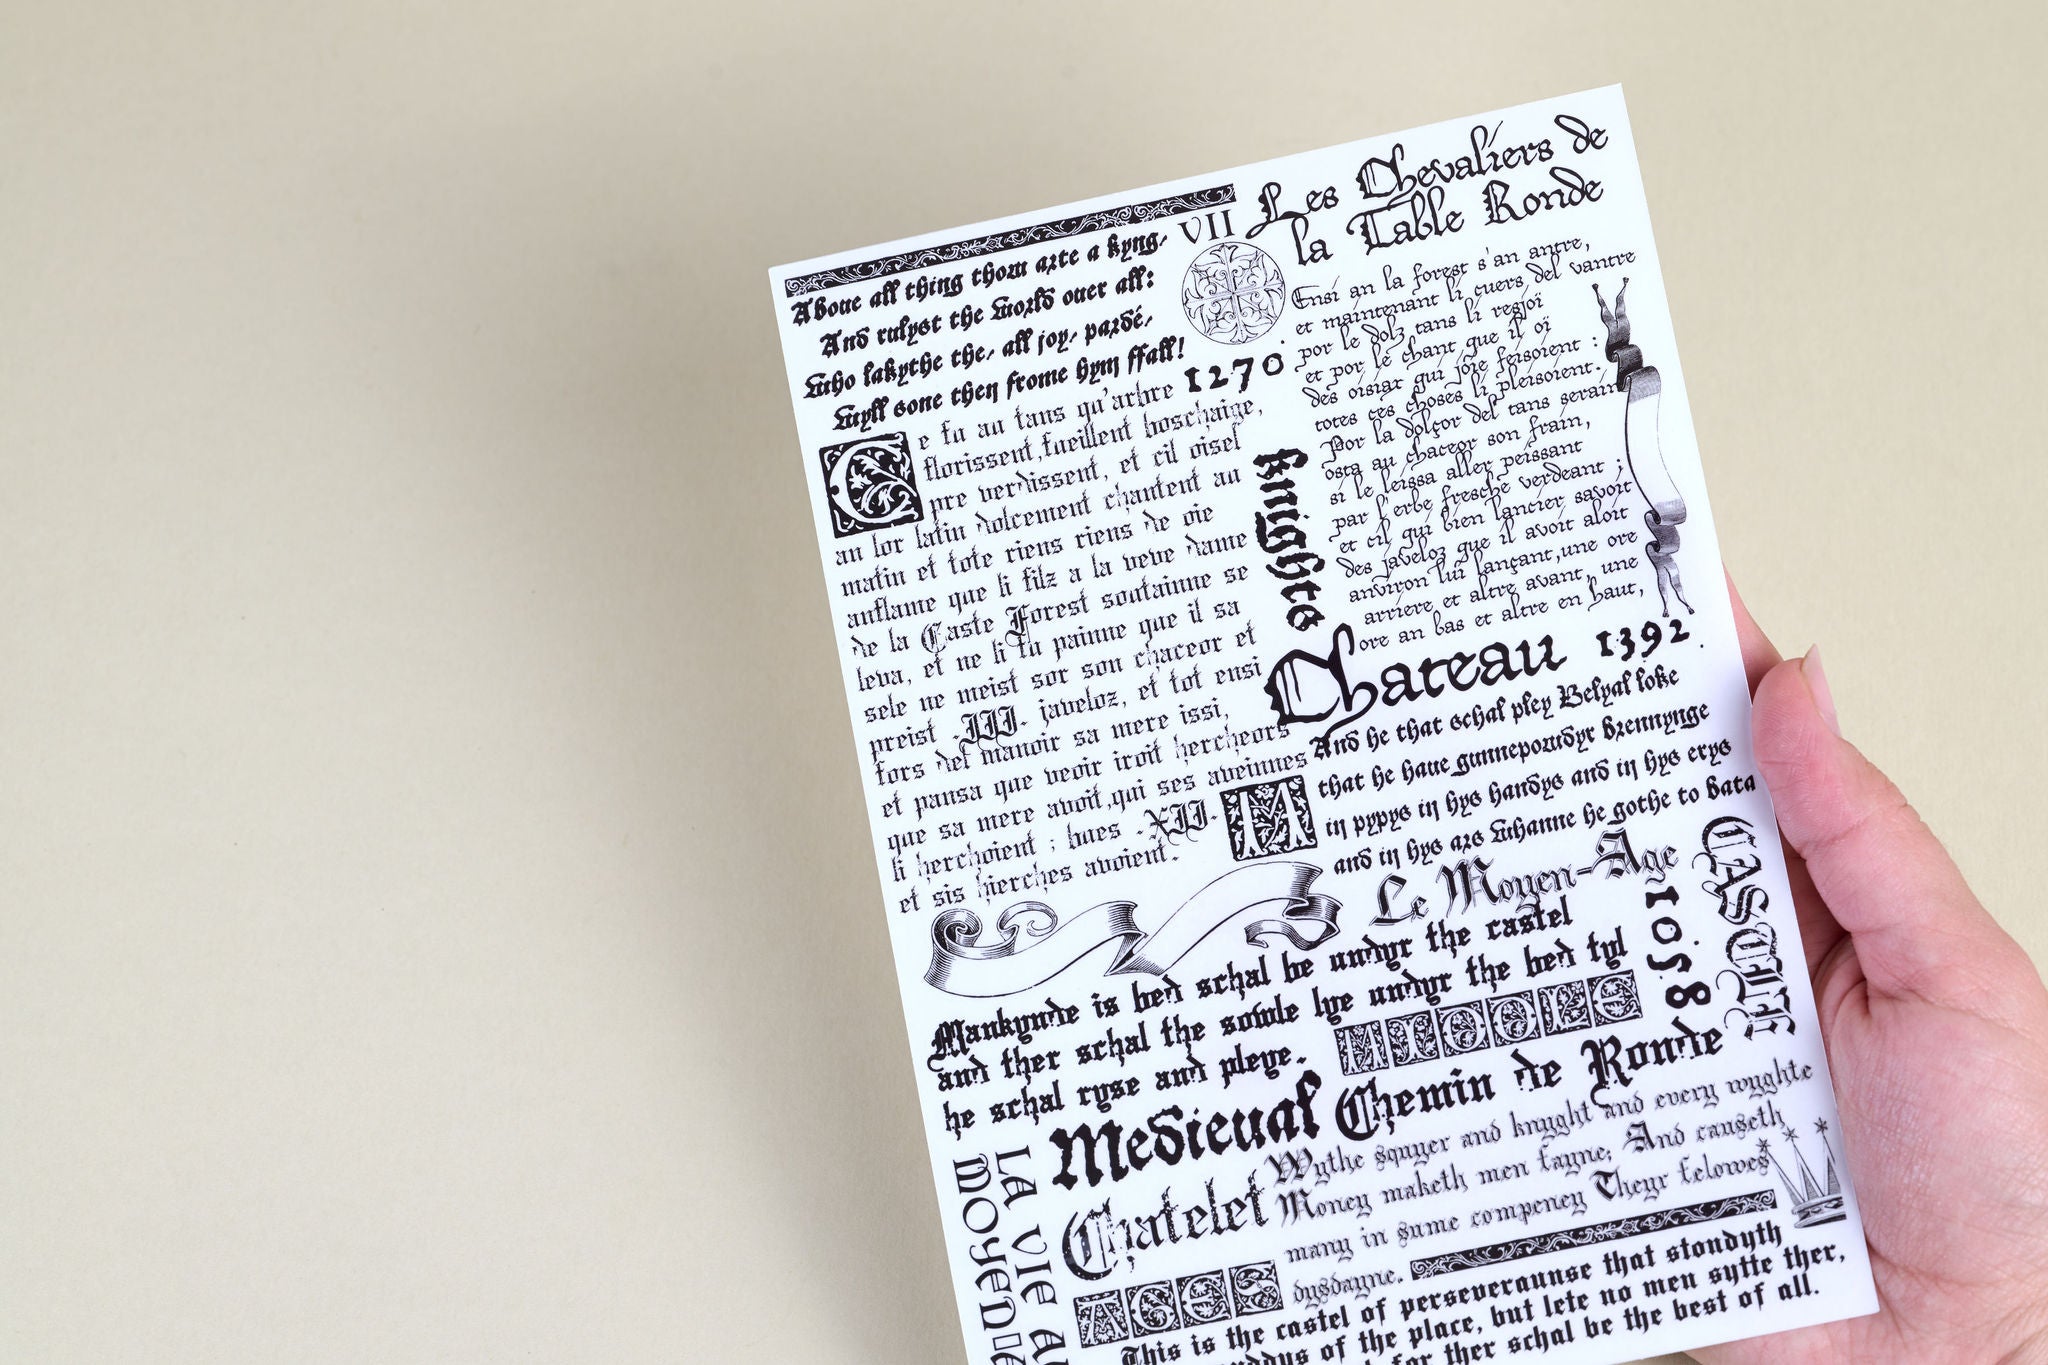 Aboue all thing thow arte a kyng,
And rulyst the world ouer all:
Who lakythe the, all joy, pardé,
Wyll sone then frome hym ffall!
VII
Les Chevaliers de
la Table Ronde
1270
Ensi an la forest s'an antre,
et maintenant li cuers del vantre
por le dolz tans li resjoï
et por le chant que il oï
des oisiax qui joie feisoient :
totes ces choses li pleisoient.
Por la dolçor del tans serain
osta au chaceor son frain,
si le leissa aller peissant
par l'erbe fresche verdeant ;
et cil qui bien lancier savoit
des javeloz que il avoit aloit
anviron lui lançant, une ore
arriere et altre avant, une
ore an bas et altre en haut,
Ce fu au tans qu'arbre
florissent, fueillent boschaige,
pre verdissent, et cil oisel
an lor latin dolcement chantent au
matin et tote riens riens de oie
anflame que li filz a la veve dame
de la Gaste Forest soutainne se
leva, et ne li fu painne que il sa
sele ne meist sor son chaceor et
preist .III. javeloz, et tot ensi
fors del manoir sa mere issi,
et pansa que veoir iroit hercheors
que sa mere avoit, qui ses aveinnes
li herchoient ; bues .XII.
et sis hierches avoient.
knights
Chateau
1392
And he that schal pley Belyal loke
that he haue gunnepowdyr brennynge
in pypys in hys handys and in hys erys
and in hys ars whanne he gothe to bata
M
Le Moyen-Age
1058
CASTLE
Mankynde is bed schal be undyr the castel
and ther schal the sowle lye undyr the bed tyl
he schal ryse and pleye.
MIDDLE
Medieval
Chemin de Ronde
Chatelet
Wythe squyer and knyght and every wyghte
Money maketh men fayne; And causeth
many in sume compeney Theyr felowes
dysdayne.
AGES
LA VIE AU
MOYEN
This is the castel of perseveraunse that stondyth
of the place, but lete no men sytte ther,
for ther schal be the best of all.